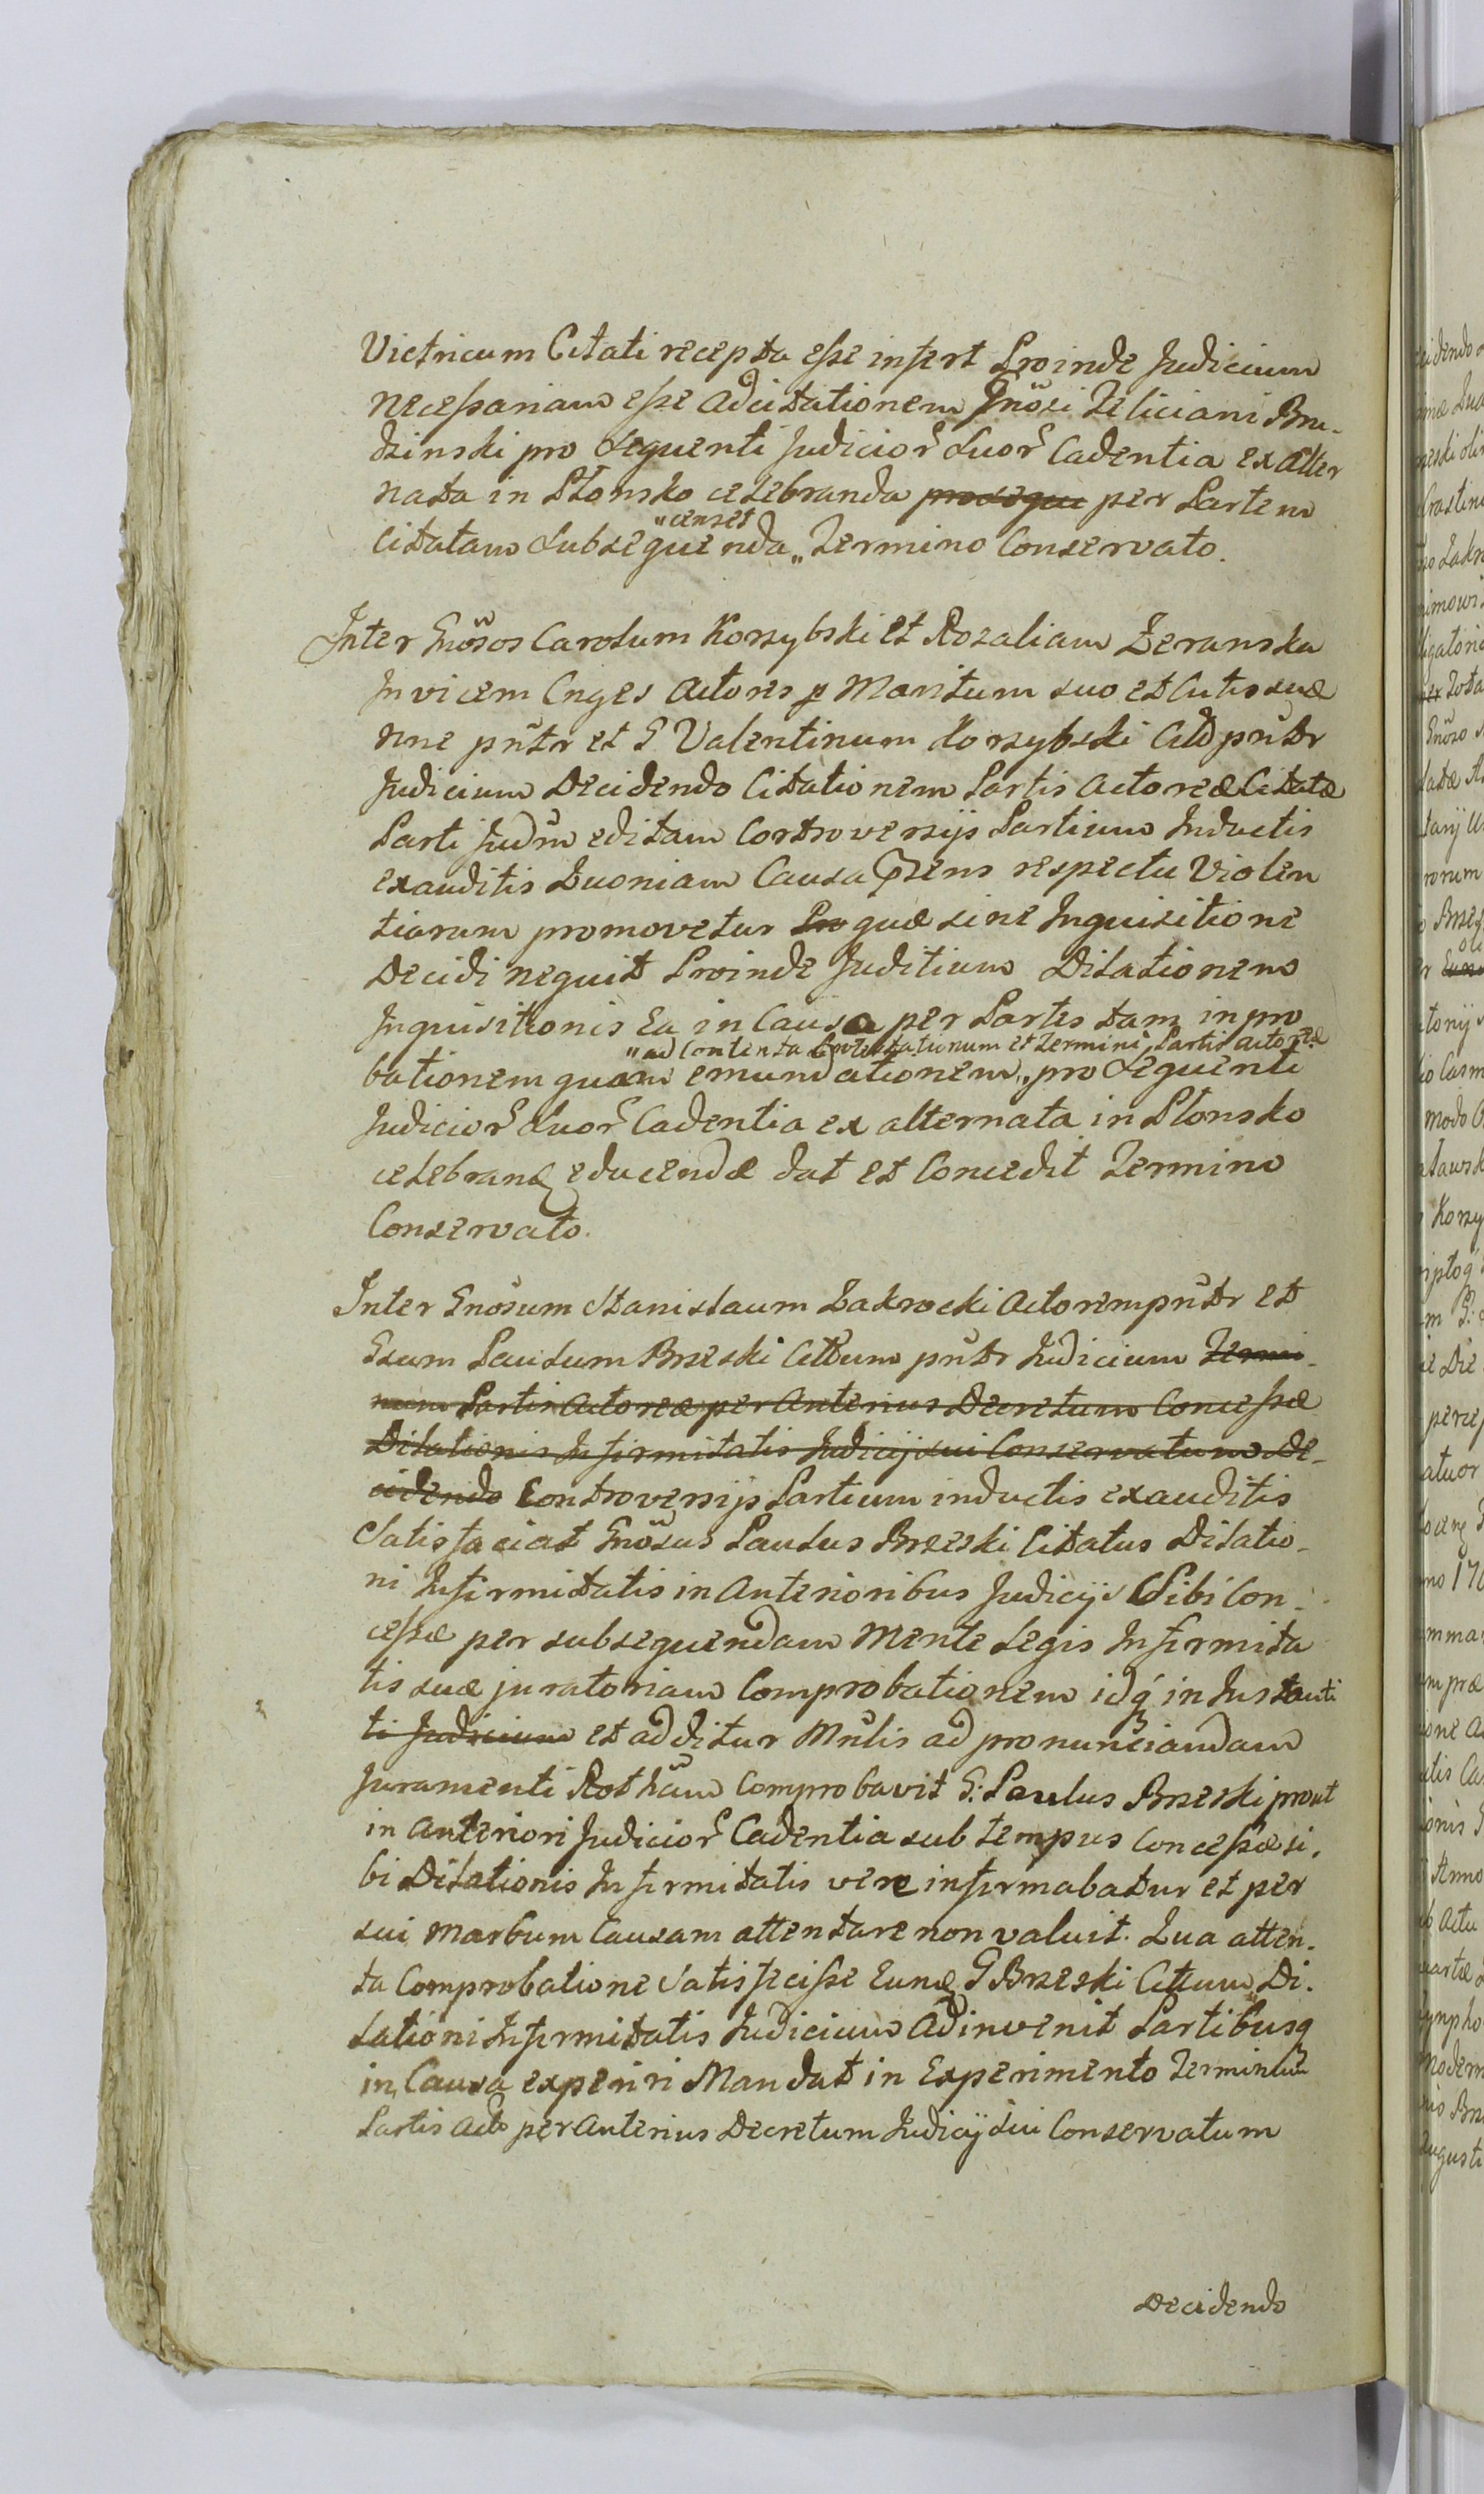 Victricum Citati recepta esse infert Proinde Judicium
necessariam esse adcitationem Gnosi Feliciani Bru-
dzinski pro sequenti Judicior Suor Cadentia ex alter
nata in Płonsko celebranda prosequi per Partem
"censet
Citatam subsequenda „ Termino Conservato.
Inter Gnosos Carolum Korzybski et Rozaliam Zeranska
Invicem Cnges Actores p Maritum suo et Cutis suæ
nne pnttr et G Valentinum Korzybski Cittd pnttr
Judicium Decidendo Citationem Partis Actoreæ Citatæ
Parti Judm editam Controversijs Partium Inductis
exauditis Quoniam Causa præsens respectu Violen
tiarum promovetur Pro quæ sine Inquisitione
Decidi nequit Proinde Juditium Dilationem
Inquisitionis Ea in Causa per Partes tam in pro
"ad Contenta Contestationum et Termini Partis Actoreæ
bationem quam emundationem „ pro sequenti
Judicior Suor Cadentia ex alternata in Płonsko
celebran educendæ dat et Concedit Termino
Conservato.
Inter Gnosum Stanislaum Zakrocki Actorem pnttr et
Gsum Paulum Brzeski Cittum pnttr Judicium Termi-
num Partis Actoreæ per Anterius Decretum Concessæ
Dilationis Infirmitatis Judicij sui Conservatum De-
cidendo Controversijs Partium inductis exauditis
Satisfaciat Gnosus Paulus Brzeski Citatus Dilatio-
ni Infirmitatis in Anterioribus Judicijs Sibi Con-
cessæ per subsequendam Mente Legis Infirmita
tis suæ juratoriam Comprobationem idq in Instanti
ti Judicium et additur Mnlis ad pronunciandam
Juramenti Rotham Comprobavit G: Paulus Brzeski prout
in Anteriori Judicior Cadentia sub tempus concessæ si-
bi Dilationis Infirmitatis vere infirmabatur et per
sui Morbum Causam attentare non valuit. Qua atten-
ta Comprobatione Satisfecisse Eund G Brzeski Cittum Di-
lationi Infirmitatis Judicium Adinvenit Partibusq
in Causa experiri Mandat in Experimento Terminum
Partis Acto per Anterius Decretum Judicij sui Conservatum
Decidendo